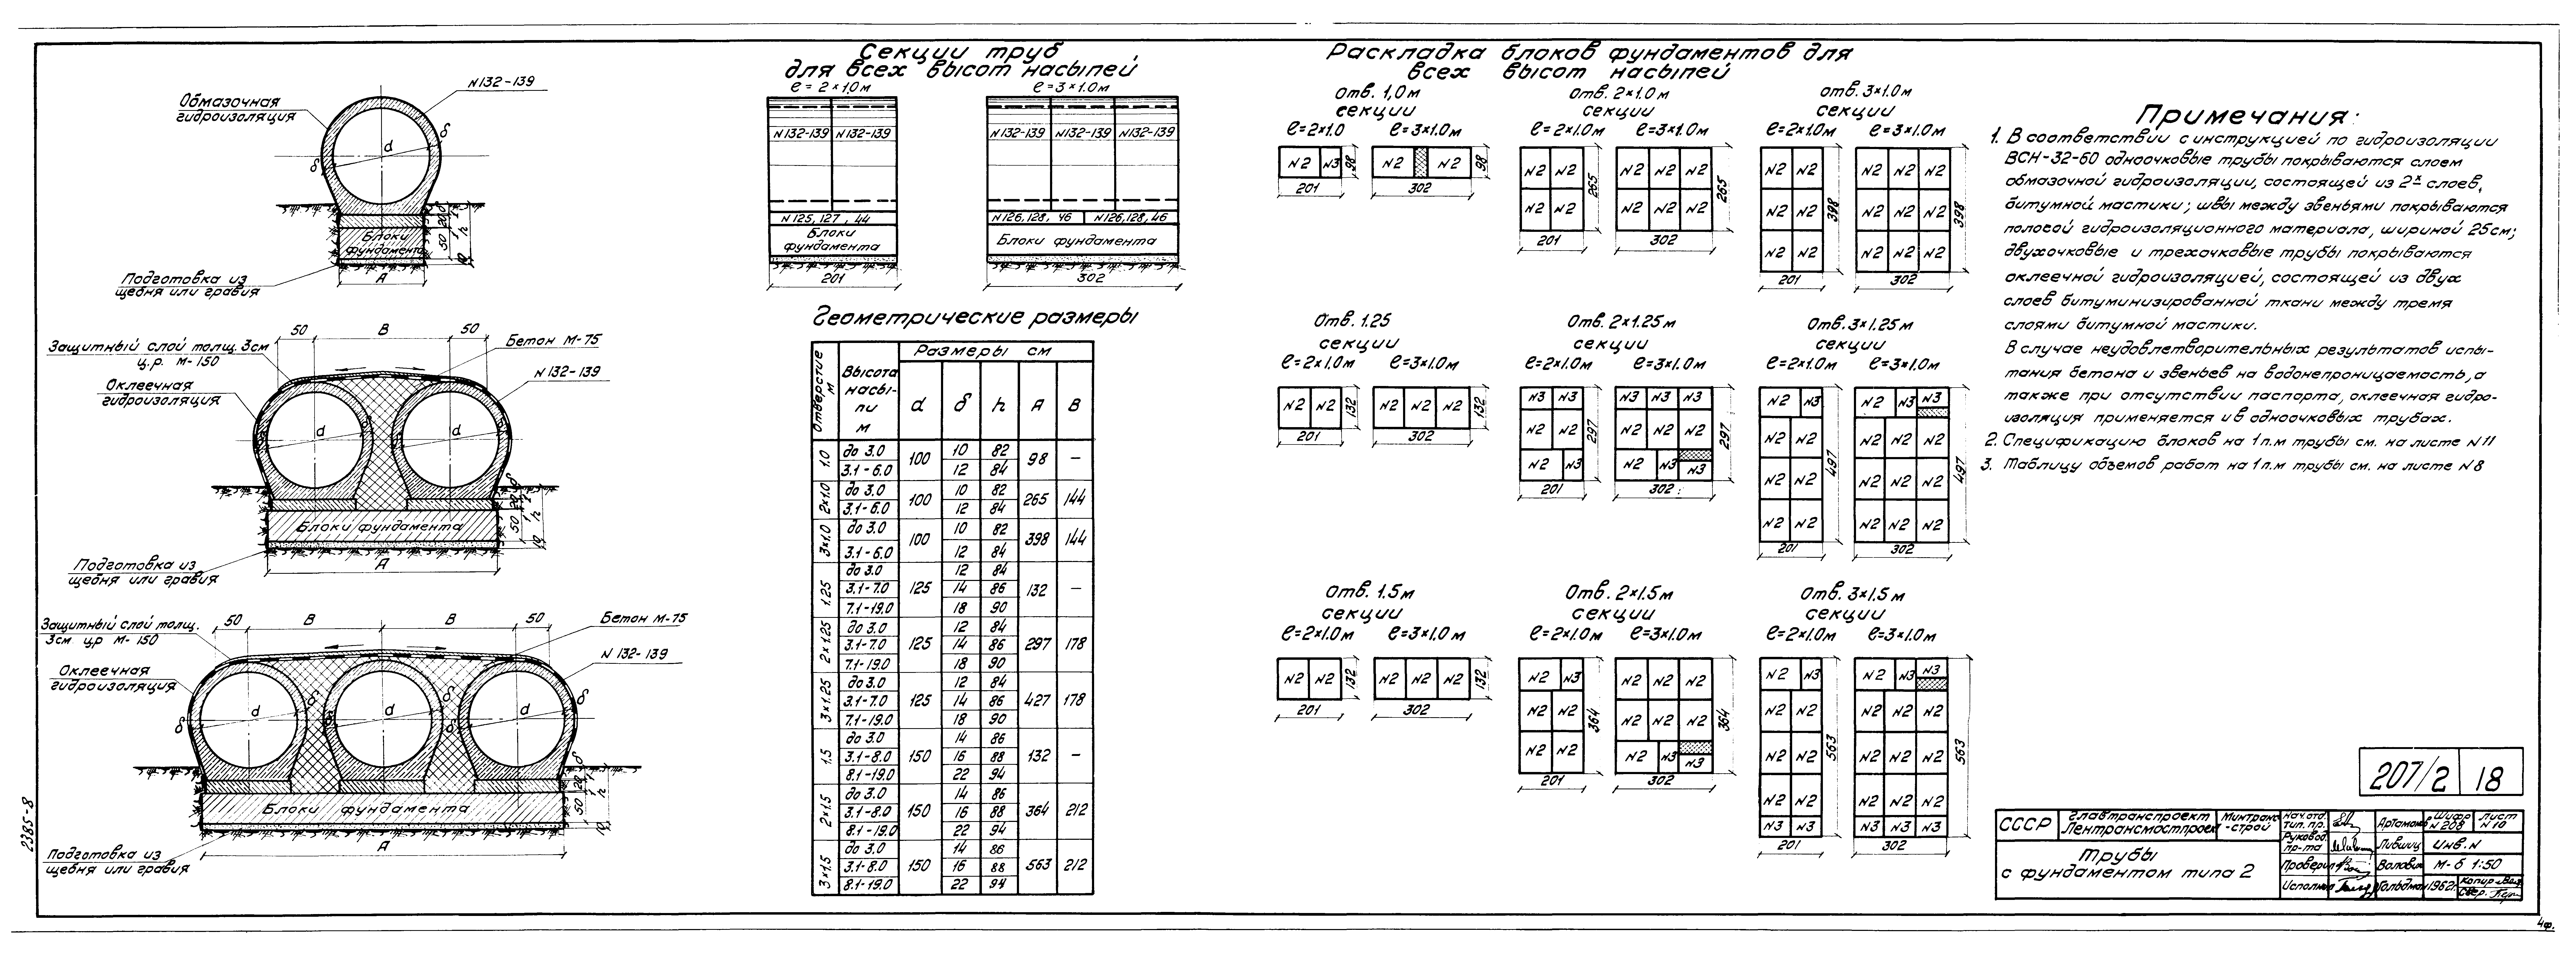 N132-139
Обмазочная
гидроизоляция
d
δ
δ
Блоки
фундамента
20
50
h
10
Подготовка из
щебня или гравия
А
50
В
50
Защитный слой толщ. 3см
ц.р. М-150
Бетон М-75
Оклеечная
гидроизоляция
N132-139
d
d
Блоки фундамента
20
50
h
10
Подготовка из
щебня или гравия
А
50
В
В
50
Защитный слой толщ.
3см ц.р М-150
Бетон М-75
Оклеечная
гидроизоляция
N 132-139
d
d
d
δ
δ
Блоки фундамента
20
50
h
10
Подготовка из
щебня или гравия
А
2385-8
Секции труб
для всех высот насыпей
ℓ=2×1.0м
ℓ=3×1.0м
N132-139 N132-139
N132-139 N132-139 N132-139
N125,127, 44
N126,128, 46 N126,128,46
Блоки
фундамента
Блоки фундамента
201
302
Геометрические размеры
Отверстие м
Высота насыпи м
Размеры см
d δ h А В
1.0 до 3.0 100 10 82 98 —
3.1-6.0 12 84
2×1.0 до 3.0 100 10 82 265 144
3.1-6.0 12 84
3×1.0 до 3.0 100 10 82 398 144
3.1-6.0 12 84
1.25 до 3.0 125 12 84 132 —
3.1-7.0 14 86
7.1-19.0 18 90
2×1.25 до 3.0 125 12 84 297 178
3.1-7.0 14 86
7.1-19.0 18 90
3×1.25 до 3.0 125 12 84 427 178
3.1-7.0 14 86
7.1-19.0 18 90
1.5 до 3.0 150 14 86 132 —
3.1-8.0 16 88
8.1-19.0 22 94
2×1.5 до 3.0 150 14 86 364 212
3.1-8.0 16 88
8.1-19.0 22 94
3×1.5 до 3.0 150 14 86 563 212
3.1-8.0 16 88
8.1-19.0 22 94
Раскладка блоков фундаментов для
всех высот насыпей
отв. 1,0м
секции
ℓ=2×1.0 ℓ=3×1.0м
N2 N3 98
201
N2 N2 98
302
отв. 2×1.0м
секции
ℓ=2×1.0м ℓ=3×1.0м
N2 N2
N2 N2
265
201
N2 N2 N2
N2 N2 N2
265
302
отв. 3×1.0м
секции
ℓ=2×1.0м ℓ=3×1.0м
N2 N2
N2 N2
N2 N2
398
201
N2 N2 N2
N2 N2 N2
N2 N2 N2
398
302
Отв. 1.25
секции
ℓ=2×1.0м ℓ=3×1.0м
N2 N2 132
201
N2 N2 N2 132
302
Отв. 2×1.25м
секции
ℓ=2×1.0м ℓ=3×1.0м
N3 N3
N2 N2
N2 N3
297
201
N3 N3 N3
N2 N2 N2
N2 N3 N3
297
302
Отв. 3×1.25м
секции
ℓ=2×1.0м ℓ=3×1.0м
N2 N3
N2 N2
N2 N2
N2 N2
497
201
N2 N3 N3
N2 N2 N2
N2 N2 N2
N2 N2 N2
497
302
Отв. 1.5м
секции
ℓ=2×1.0м ℓ=3×1.0м
N2 N2 132
201
N2 N2 N2 132
302
Отв. 2×1.5м
секции
ℓ=2×1.0м ℓ=3×1.0м
N2 N3
N2 N2
N2 N2
364
201
N2 N2 N2
N2 N2 N2
N2 N3 N3
364
302
Отв. 3×1.5м
секции
ℓ=2×1.0м ℓ=3×1.0м
N2 N3
N2 N2
N2 N2
N2 N2
N3 N3
563
201
N2 N3 N3
N2 N2 N2
N2 N2 N2
N2 N2 N2
N3 N3 N3
563
302
Примечания:
1. В соответствии с инструкцией по гидроизоляции
ВСН-32-60 одноочковые трубы покрываются слоем
обмазочной гидроизоляции, состоящей из 2х слоев,
битумной мастики; швы между звеньями покрываются
полосой гидроизоляционного материала, шириной 25см;
двухочковые и трехочковые трубы покрываются
оклеечной гидроизоляцией, состоящей из двух
слоев битуминизированной ткани между тремя
слоями битумной мастики.
В случае неудовлетворительных результатов испы-
тания бетона и звеньев на водонепроницаемость, а
также при отсутствии паспорта, оклеечная гидро-
изоляция применяется и в одноочковых трубах.
2. Спецификацию блоков на 1п.м трубы см. на листе N11
3. Таблицу объемов работ на 1п.м трубы см. на листе N8
207/2 18
СССР
Главтранспроект
Лентрансмостпроект
Минтранс
-строй
Нач.отд.
тип.пр.
Артамонов
Шифр
N 208
Лист
N 10
Руковод.
пр-та
Лившиц
Инв.N
Трубы
с фундаментом типа 2
Проверил
М-б 1:50
Исполнил
Гольдман
1962г.
Копир.
Свер.
4ф.